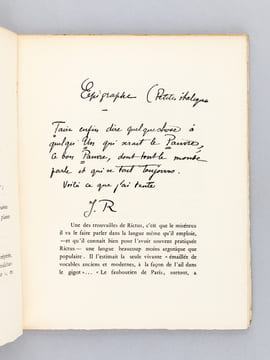 Epigraphe (Petits italiques
Faire enfin dire quelque chose à
quelqu'Un qui serait le Pauvre,
ce bon Pauvre, dont tout le monde
parle et qui se tait toujours.
Voilà ce que j'ai tenté
J. R
Une des trouvailles de Rictus, c'est que le miséreux
il va le faire parler dans la langue même qu'il emploie,
—et qu'il connaît bien pour l'avoir souvent pratiquée
Rictus — une langue beaucoup moins argotique que
populaire. Il l'estimait la seule vivante « émaillée de
vocables anciens et modernes, à la façon de l'ail dans
le gigot »... « Le faubourien de Paris, surtout, a